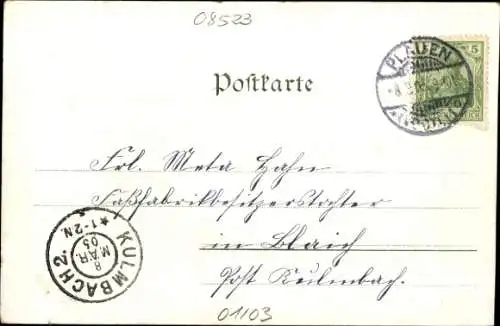 08523
PLAUEN
5
Postkarte
Frl. Meta Hahn
Faßfabrikbesitzerstochter
in Blaich
Post Kulmbach.
KULMBACH 2.
8
MAR.
05
*1-2N.
01103